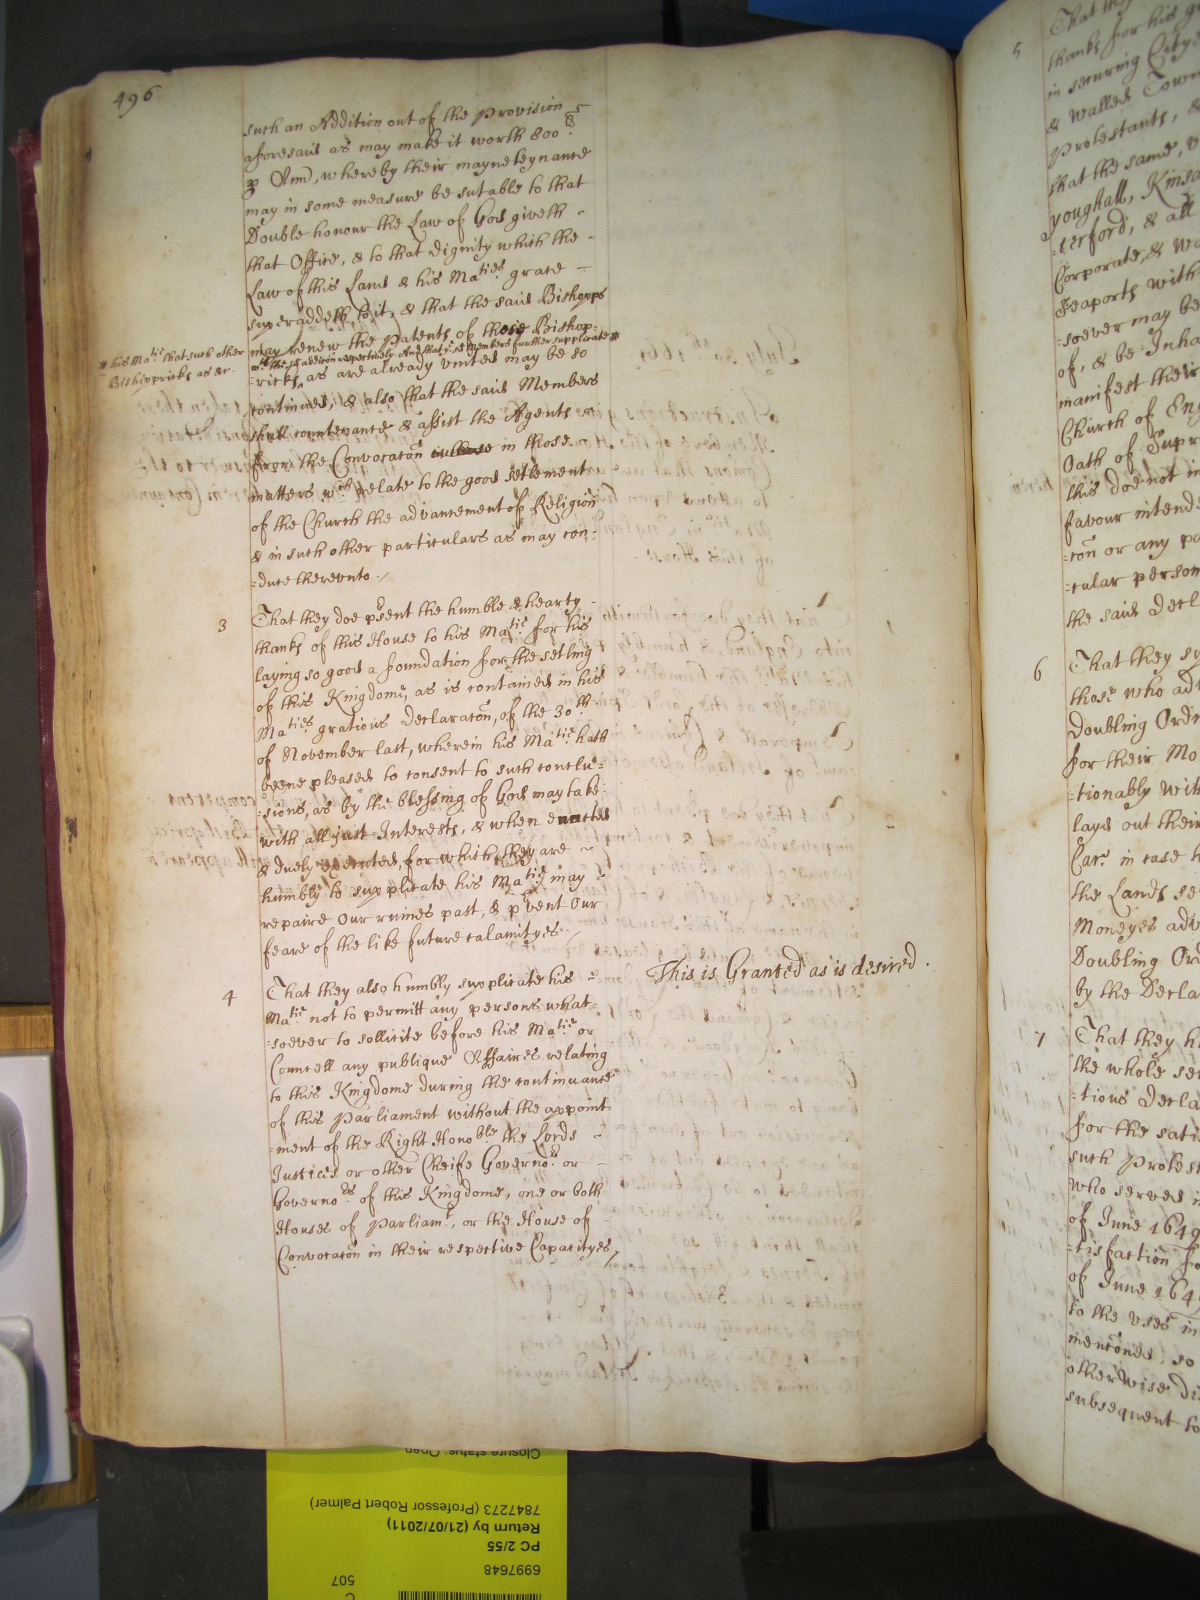 496
such an Addition out of the Provision
aforesaid as may make it worth 800
p Ann, whereby their mayneteynance
may in some measure be sutable to that
Double honour the Law of God giveth -
that Office, & to that dignity which the -
Law of this Land & his Maties grace -
superaddeth to it, & that the said Bishopps
may renew the Patents of those Bishop-
respectively And that further supplicate
* his Matie that such other
Bishoppricks as &c.
=ricks, as are already united may be so
continued, & also that the said Members
shall countenance & assist the Agents
from the Convocaton in those
matters wch relate to the good setlement
of the Church the advancement of Religion
& in such other particulars as may con=
=duce therevnto ./
3
That they doe psent the humble & hearty -
thanks of this House to his Matie for his
laying so good a foundation for the setling
of this Kingdome, as is contained in his
Maties gratious Declaraton, of the 30th
of November last, wherein his Matie hath
beene pleased to consent to such conclu=
=sions, as by the blessing of God may take
with all just Interests, & when enacted
& duely executed, for which they are ~
humbly to supplicate his Matie may -
repaire our ruines past, & pvent our
feare of the like future calamityes ./
4
That they also humbly supplicate his -
Matie not to permitt any persons what=
=soever to sollicite before his Matie or
Councell any publique Affaires relating
to this Kingdome during the continuance
of this Parliament without the appoint
=ment of the Right Honoble the Lords -
Justices or other Cheife Governor or -
Governors of this Kingdome, one or both
Houses of Parliamt, or the House of
Convocaton in their respective Capacityes/
This is Granted as is desired .
5
thanks for his
in securing
& walled Town
Protestants, &
that the same,
Youghall, Kinsa
=terford, & all
Corporate, & wa
Seaports with
=soever may be
of, & be Inha
manifest their
Church of Eng
Oath of Supr
this doe not in
favour intende
=con or any pa
=cular person
the said Decl
6
That they su
those who adv
Doubling Ordi
for their Mo
=tionably with
layd out their
Care in case
the Lands se
Moneyes adv
Doubling Ord
by the Decla
7
That they
the whole set
=tious Decla
for the sati
such Protest
who served
of June 1649
=tisfaction fo
of June 164
to the vses in
menconed, so
otherwise di
subsequent to
Closure status: Open
7847273 (Professor Robert Palmer)
Return by (21/07/2011)
PC 2/55
6997648
507